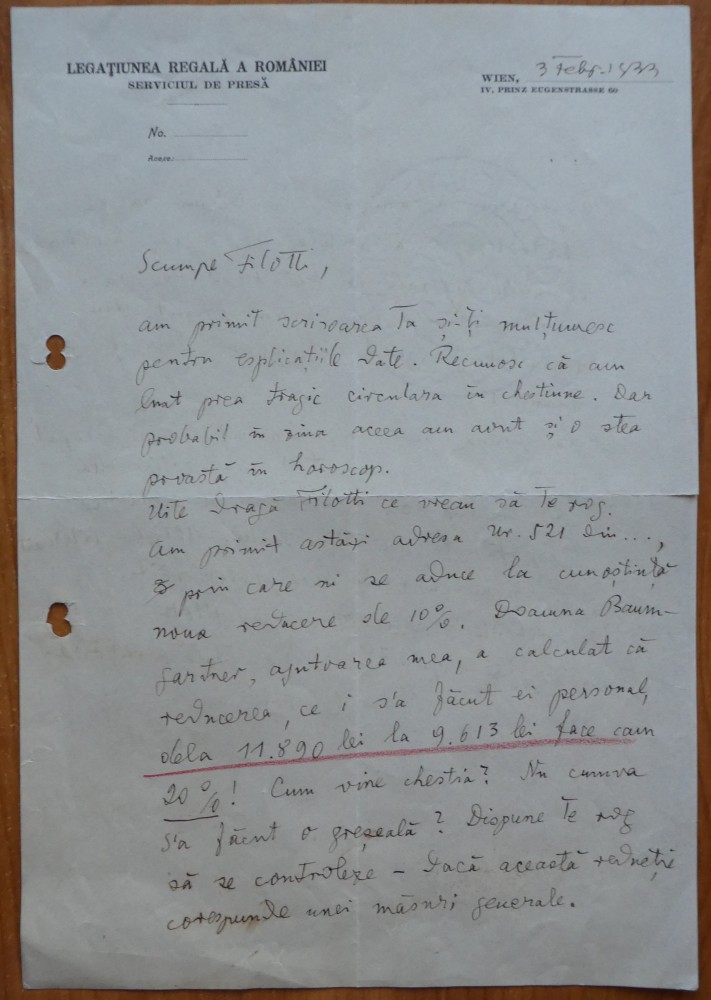 LEGAȚIUNEA REGALĂ A ROMÂNIEI
SERVICIUL DE PRESĂ
WIEN, 3 Febr. 1933
IV. PRINZ EUGENSTRASSE 60
No.
Anexe:
Scumpe Filotti,
am primit scrisoarea Ta și-ți mulțumesc
pentru esplicațiile date. Recunosc că am
luat prea tragic circulara în chestiune. Dar
probabil în ziua aceea am avut și o stea
proastă în horoscop.
Uite dragă Filotti ce vreau să Te rog.
Am primit astăzi adresa Nr. 521 din...,
prin care ni se aduce la cunoștință
noua reducere de 10%. Doamna Baum-
gartner, ajutoarea mea, a calculat că
reducerea, ce i s'a făcut ei personal,
dela 11.890 lei la 9.613 lei face cam
20%! Cum vine chestia? Nu cumva
s'a făcut o greșeală? Dispune Te rog
să se controleze – dacă această reducție
corespunde unei măsuri generale.